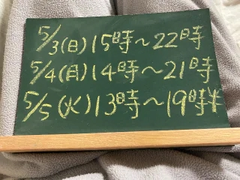 5/3(日)15時〜22時
5/4(月)14時〜21時
5/5(火)13時〜19時半